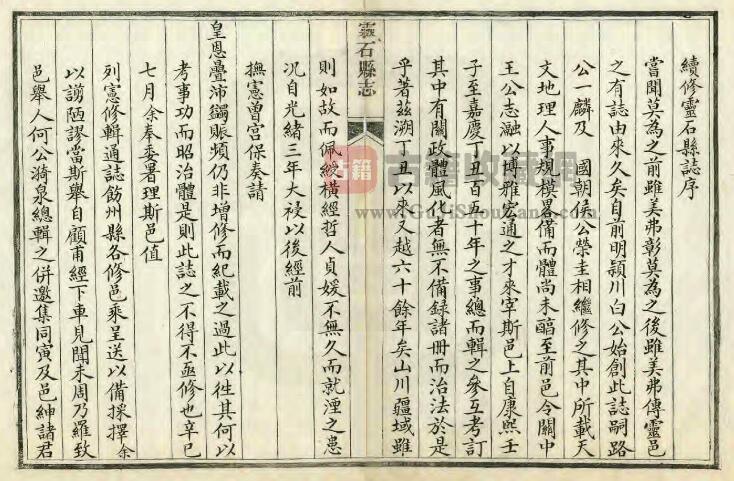 續修靈石縣誌序
嘗聞莫為之前雖美弗彰莫為之後雖美弗傳靈邑
之有誌由來久矣自前明潁川白公始創此誌嗣路
公一麟及 國朝侯公榮圭相繼修之其中所載天
文地理人事規模畧備而體尚未醕至前邑令關中
王公志瀜以博雅宏通之才來宰斯邑上自康熙壬
子至嘉慶丁丑百五十年之事總而輯之參互考訂
其中有關政體風化者無不備録諸冊而治法於是
乎著茲溯丁丑以來又越六十餘年矣山川疆域雖
靈石縣志
則如故而佩綬橫經哲人貞媛不無久而就湮之患
況自光緒三年大祲以後經前
撫憲曾宮保奏請
皇恩疊沛蠲賑頻仍非增修而紀載之過此以徃其何以
考事功而昭治體是則此誌之不得不亟修也辛巳
七月余奉委署理斯邑值
列憲修輯通誌飭州縣各修邑乘呈送以備採擇余
以謭陋謬當斯舉自顧甫經下車見聞未周乃羅致
邑舉人何公漪泉總輯之併邀集同寅及邑紳諸君
古籍
古籍收藏网
www.GuJiShouCang.com